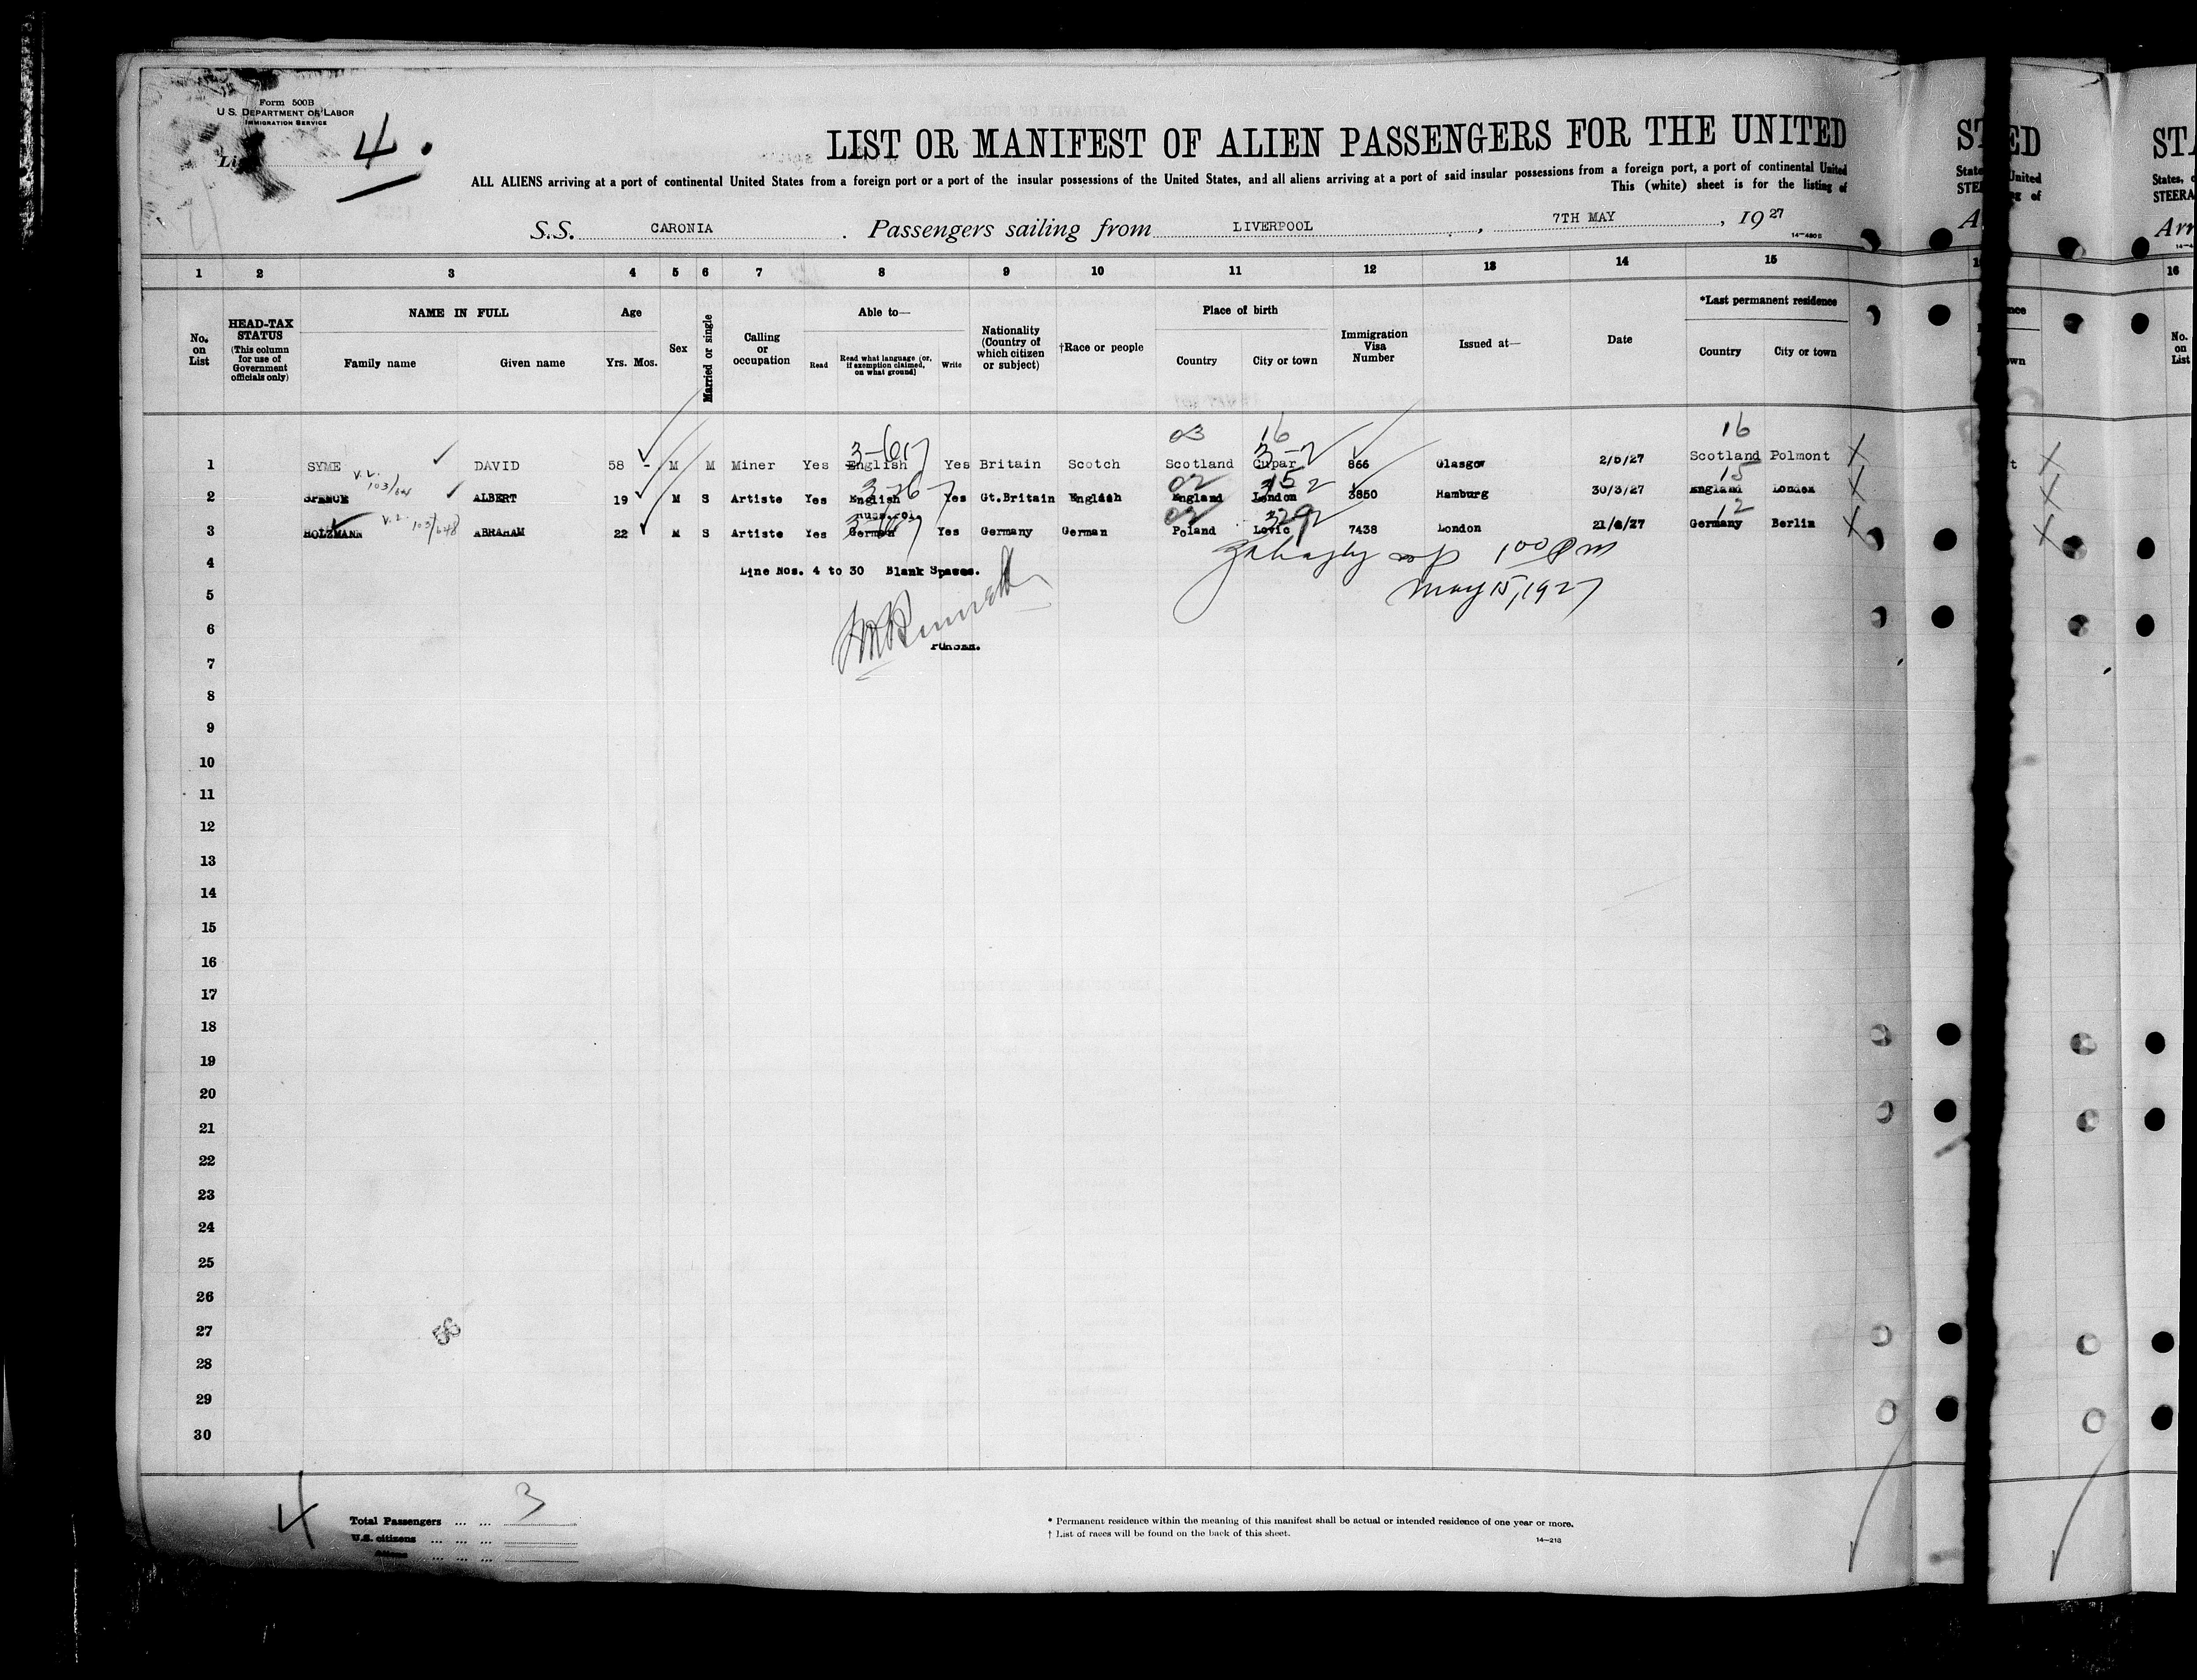 Form 500B
U. S. DEPARTMENT OF LABOR
IMMIGRATION SERVICE
4.
LIST OR MANIFEST OF ALIEN PASSENGERS FOR THE UNITED
ALL ALIENS arriving at a port of continental United States from a foreign port or a port of the insular possessions of the United States, and all aliens arriving at a port of said insular possessions from a foreign port, a port of continental United
This (white) sheet is for the listing of
S.S. CARONIA. Passengers sailing from LIVERPOOL, 7TH MAY, 1927
14-480 B
1 2 3 4 5 6 7 8 9 10 11 12 13 14 15 16
No. on List
HEAD-TAX STATUS (This column for use of Government officials only)
NAME IN FULL
Family name Given name
Age
Yrs. Mos.
Sex
Married or single
Calling or occupation
Able to—
Read
Read what language (or, if exemption claimed, on what ground)
Write
Nationality (Country of which citizen or subject)
†Race or people
Place of birth
Country City or town
Immigration Visa Number
Issued at—
Date
*Last permanent residence
Country City or town
No. on List
03 16 16
3-617 3-2
1 SYME DAVID 58 - M M Miner Yes English Yes Britain Scotch Scotland Cupar 866 Glasgow 2/5/27 Scotland Polmont X
V.L. 103/
02 15
2 SPENCE ALBERT 19 M S Artiste Yes English Yes Gt.Britain English England London 3850 Hamburg 30/3/27 England London X
V.L. 103/648
02 329 12
3 HOLZMANN ABRAHAM 22 M S Artiste Yes German Yes Germany German Poland Lovic 7438 London Germany Berlin X
4 Line Nos. 4 to 30 Blank Spaces.
100 PM
May 15, 1927
5
6
Purser.
7
8
9
10
11
12
13
14
15
16
17
18
19
20
21
22
23
24
25
26
27
28
29
30
4
Total Passengers ... ... 3
U.S. citizens ... ... ...
Aliens ... ... ...
* Permanent residence within the meaning of this manifest shall be actual or intended residence of one year or more.
† List of races will be found on the back of this sheet.
14-213